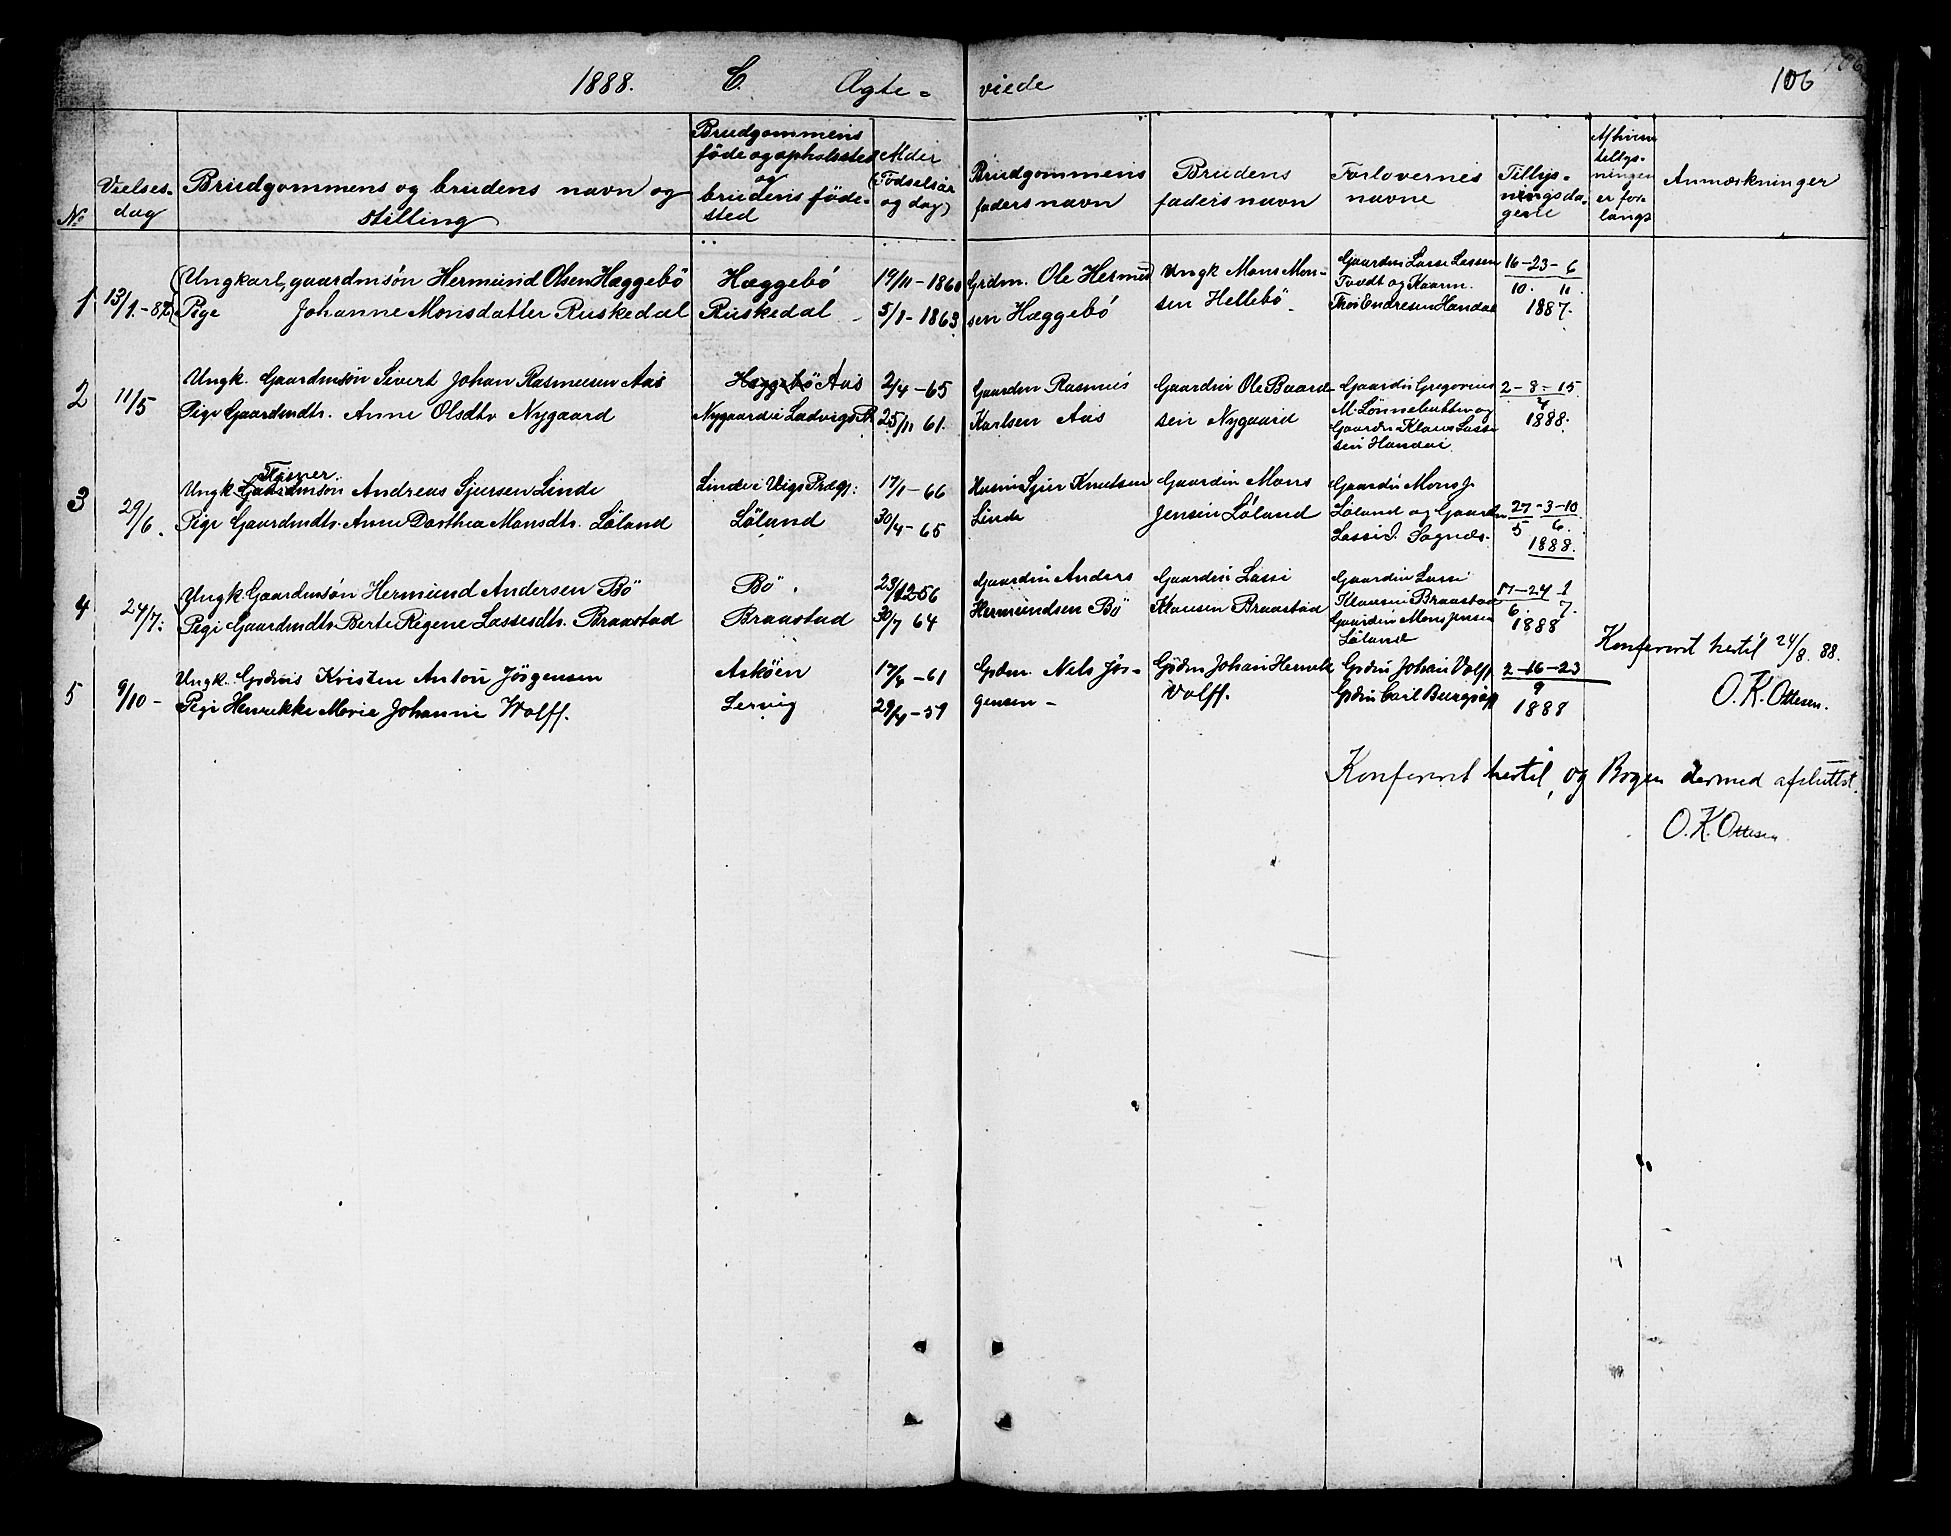 1888. C. Ægte- viede 106
106
No
Vielses-
dag
Brudgommens og brudens navn og
stilling
Brudgommens
føde og opholdssted
og
brudens føde-
sted
Alder
(Fødselsår
og dag)
Brudgommens
faders navn
Brudens
faders navn
Forlovernes
navne
Tillys-
ningsda-
gene
tillys-
ningen
er for-
langt
Anmærkninger
1 13/1-88
Ungkarl, gaardmsön Hermund Olsen Hæggebö
Pige Johanne Monsdatter Ruskedal
Hæggebö
Ruskedal
19/11-1860
5/1-1863
Grdm. Ole Hermund
sen Hæggebö
Ungk Mons Mon-
sen Hellebö
Gaardm Lasse Lassen
Tvedt og Kaarm.
Thoe Endresen Handal
16-23-6
10. 11.
1887.
2 11/5
Ungk. Gaardmsön Sivert Johan Rasmussen Aas
Pige Gaardmdtr. Anne Olsdtr Nygaard
Hæggebö Aas
Nygaard i Ladvigs P.
2/4-65
25/11 61.
Gaardm Rasmus
Karlsen Aas
Gaardm Ole Baard-
sen Nygaard
Gaardm Gregorius
M. Lønnebutten og
Gaardm Klaus Lasse
sen Handal
2-8-15
4
1888.
3 29/6.
Ungk Gaardmsön Andreas Sjursen Linde
Pige Gaardmdtr. Anne Dorthea Monsdtr. Løland
Linde i Viigs Prægj:
Løland
17/1-66
30/4-65
Husm Sjur Knutsen
Linde
Gaardm Mons
Jensen Løland
Gaardm Mons J.
Løland og Gaardm
Lasse J. Sognes.
27-3-10
5 6.
1888.
4 24/7.
Ungk. Gaardmsön Hermund Andersen Bö
Pige Gaardmdtr Berte Regine Lassesdtr. Braastad
Bö.
Braastad
23/12 56
30/7 64
Gaardm Anders
Hermundsen Bö
Gaardm Lasse
Klausen Braastad
Gaardm Lasse
Klausen Braastad
Gaardm Mons Jensen
Løland
17-24 1
6. 7.
1888
Konferert hertil 24/8. 88.
O. K. Ottesen.
5 9/10-
Ungk. Grdms Kristen Anton Jörgensen
Pige Henrikke Marie Johanne Wolff.
Askøen
Lervig
29/4-59
Grdm. Nels Jör-
gensen-
Grdm Johan Henrik
Wolff.
Grdm Johan Wolff
2-16-23
9
1888
Konferert hertil, og Bogen dermed afsluttet.
O. K. Ottesen